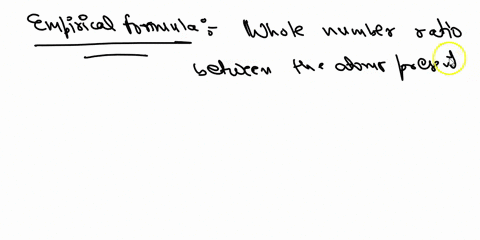 Empirical formula :- Whole number ratio
between the atoms present